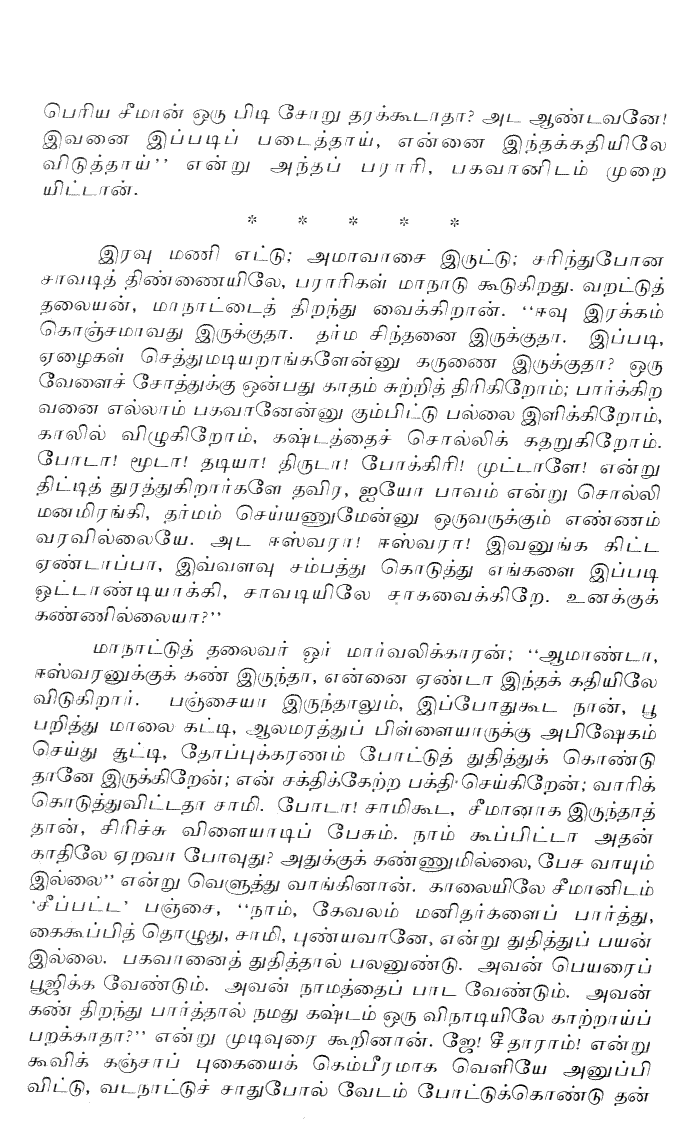 பெரிய சீமான் ஒரு பிடி சோறு தரக்கூடாதா? அட ஆண்டவனே!
இவனை இப்படிப் படைத்தாய், என்னை இந்தக்கதியிலே
விடுத்தாய்’’ என்று அந்தப் பராரி, பகவானிடம் முறை
யிட்டான்.
* * * * *
இரவு மணி எட்டு; அமாவாசை இருட்டு; சரிந்துபோன
சாவடித் திண்ணையிலே, பராரிகள் மாநாடு கூடுகிறது. வறட்டுத்
தலையன், மாநாட்டைத் திறந்து வைக்கிறான். ‘‘ஈவு இரக்கம்
கொஞ்சமாவது இருக்குதா. தர்ம சிந்தனை இருக்குதா. இப்படி,
ஏழைகள் செத்துமடியறாங்களேன்னு கருணை இருக்குதா? ஒரு
வேளைச் சோத்துக்கு ஒன்பது காதம் சுற்றித் திரிகிறோம்; பார்க்கிற
வனை எல்லாம் பகவானேன்னு கும்பிட்டு பல்லை இளிக்கிறோம்,
காலில் விழுகிறோம், கஷ்டத்தைச் சொல்லிக் கதறுகிறோம்.
போடா! மூடா! தடியா! திருடா! போக்கிரி! முட்டாளே! என்று
திட்டித் துரத்துகிறார்களே தவிர, ஐயோ பாவம் என்று சொல்லி
மனமிரங்கி, தர்மம் செய்யணுமேன்னு ஒருவருக்கும் எண்ணம்
வரவில்லையே. அட ஈஸ்வரா! ஈஸ்வரா! இவனுங்க கிட்ட
ஏண்டாப்பா, இவ்வளவு சம்பத்து கொடுத்து எங்களை இப்படி
ஒட்டாண்டியாக்கி, சாவடியிலே சாகவைக்கிறே. உனக்குக்
கண்ணில்லையா?’’
மாநாட்டுத் தலைவர் ஓர் மார்வலிக்காரன்; ‘‘ஆமாண்டா,
ஈஸ்வரனுக்குக் கண் இருந்தா, என்னை ஏண்டா இந்தக் கதியிலே
விடுகிறார். பஞ்சையா இருந்தாலும், இப்போதுகூட நான், பூ
பறித்து மாலை கட்டி, ஆலமரத்துப் பிள்ளையாருக்கு அபிஷேகம்
செய்து சூட்டி, தோப்புக்கரணம் போட்டுத் துதித்துக் கொண்டு
தானே இருக்கிறேன்; என் சக்திக்கேற்ற பக்தி செய்கிறேன்; வாரிக்
கொடுத்துவிட்டதா சாமி. போடா! சாமிகூட, சீமானாக இருந்தாத்
தான், சிரிச்சு விளையாடிப் பேசும். நாம் கூப்பிட்டா அதன்
காதிலே ஏறவா போவுது? அதுக்குக் கண்ணுமில்லை, பேச வாயும்
இல்லை’’ என்று வெளுத்து வாங்கினான். காலையிலே சீமானிடம்
‘சீப்பட்ட’ பஞ்சை, ‘‘நாம், கேவலம் மனிதர்களைப் பார்த்து,
கைகூப்பித் தொழுது, சாமி, புண்யவானே, என்று துதித்துப் பயன்
இல்லை. பகவானைத் துதித்தால் பலனுண்டு. அவன் பெயரைப்
பூஜிக்க வேண்டும். அவன் நாமத்தைப் பாட வேண்டும். அவன்
கண் திறந்து பார்த்தால் நமது கஷ்டம் ஒரு விநாடியிலே காற்றாய்ப்
பறக்காதா?’’ என்று முடிவுரை கூறினான். ஜே! சீதாராம்! என்று
கூவிக் கஞ்சாப் புகையைக் கெம்பீரமாக வெளியே அனுப்பி
விட்டு, வடநாட்டுச் சாதுபோல் வேடம் போட்டுக்கொண்டு தன்